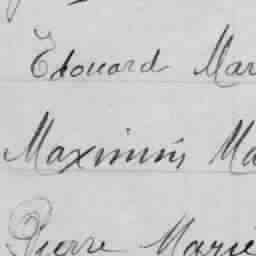 Edouard Mar
Maximin Ma
Pierre Marie